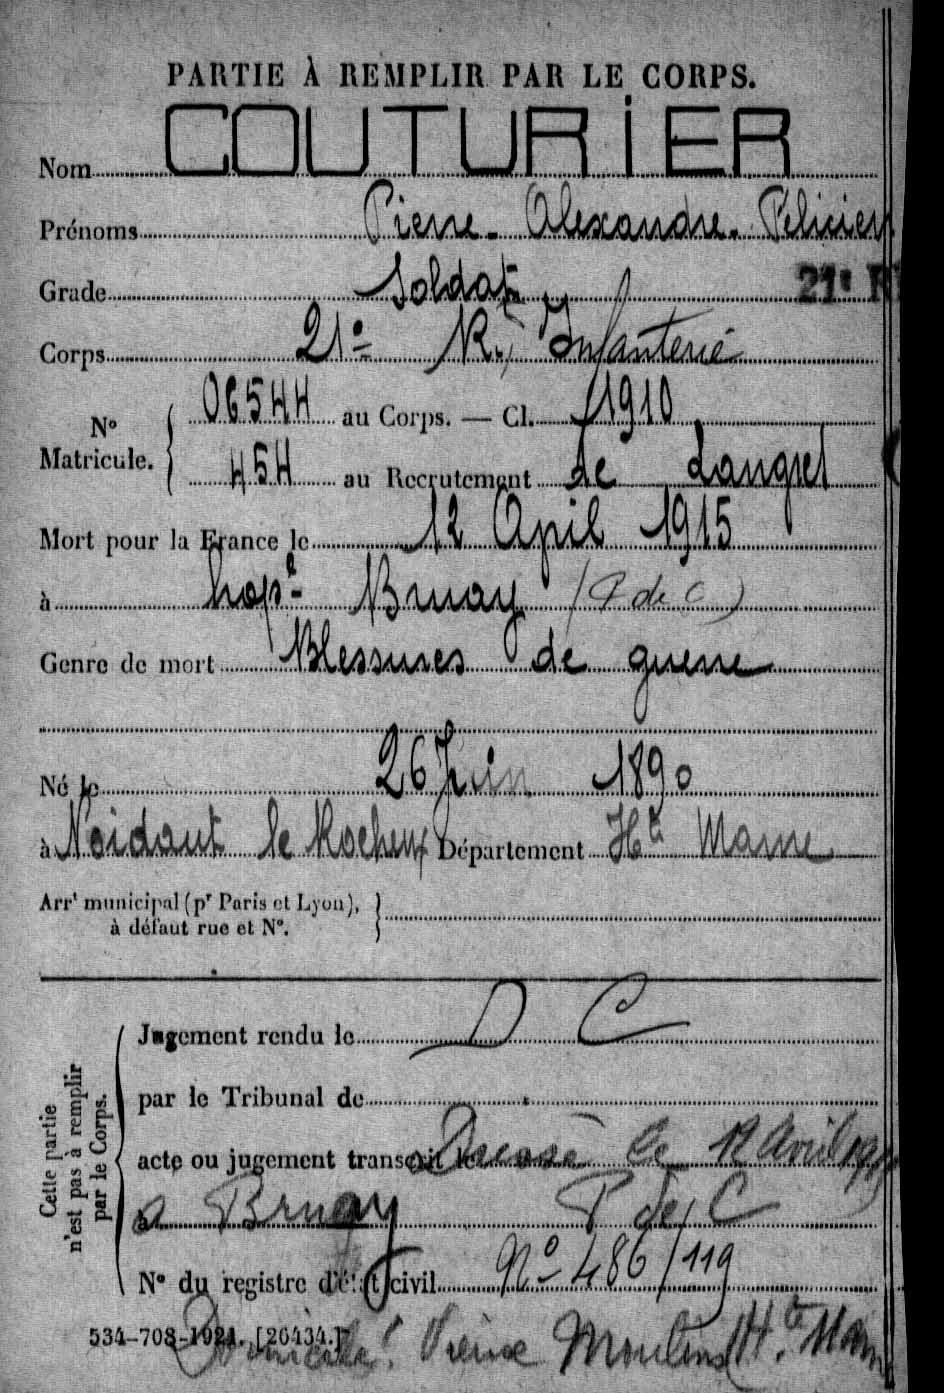 PARTIE À REMPLIR PAR LE CORPS.
Nom COUTURIER
Prénoms Pierre. Alexandre. Félicien
Grade Soldat 21e R
Corps 21e R. Infanterie
No Matricule. { 06544 au Corps. — Cl. 1910
454 au Recrutement de Langres
Mort pour la France le 12 April 1915
à hopal Bruay (P de C)
Genre de mort Blessures de guerre
Né le 26 Juin 1890
à Noidant le Rocheux Département Hte Marne
Arrt municipal (pr Paris et Lyon),
à défaut rue et No. }
Cette partie
n'est pas à remplir
par le Corps.
Jugement rendu le D C
par le Tribunal de
acte ou jugement transcrit le Dressé le 12 Avril 1915
à Bruay P de C
No du registre d'état civil No 486/119
534-708-1921. [26434.]
Domicile: Vieux Moulins Hte Marne